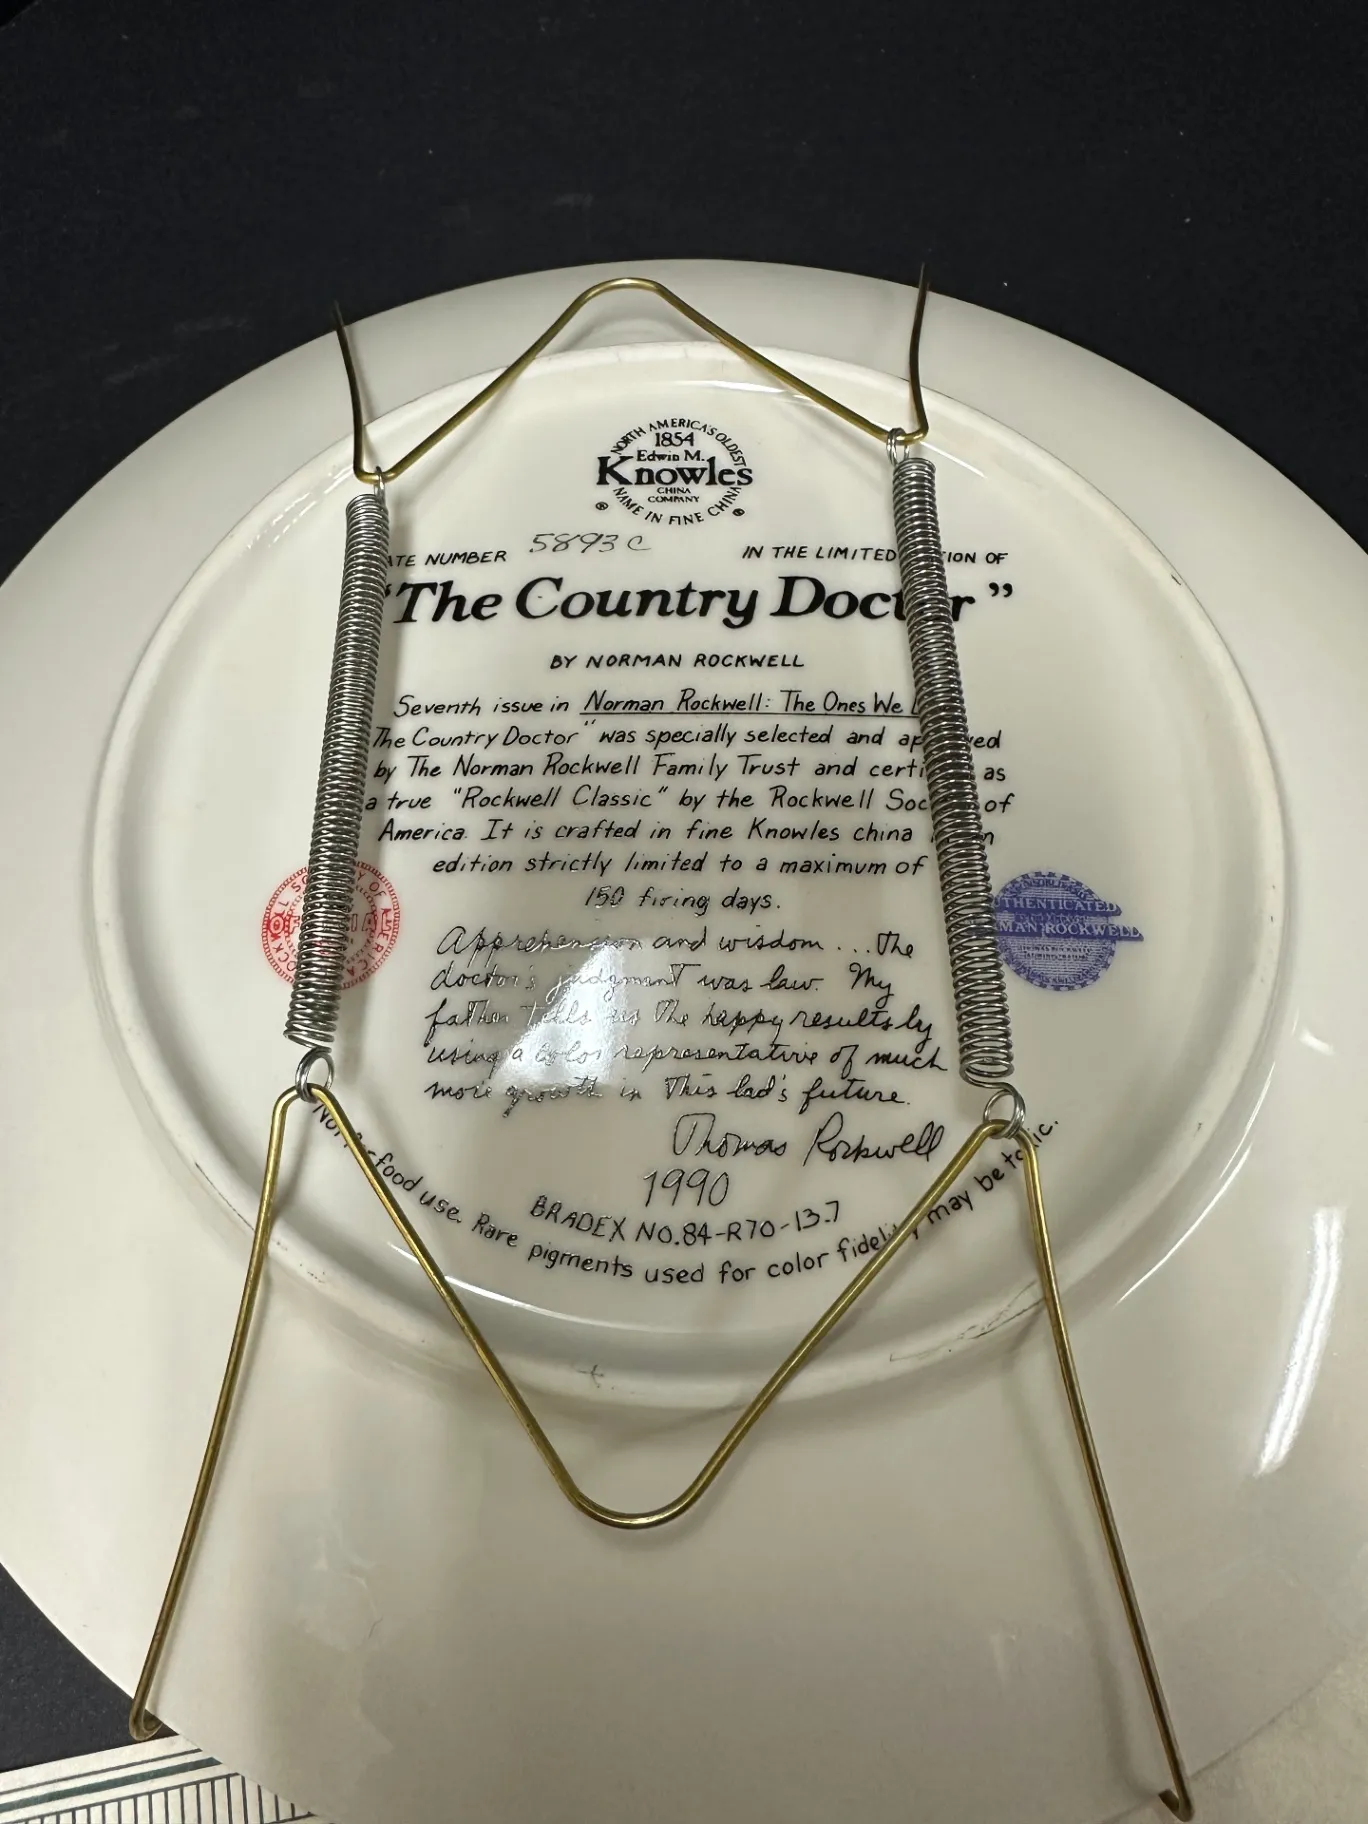 NORTH AMERICA'S OLDEST
1854
Edwin M.
Knowles
CHINA
COMPANY
NAME IN FINE CHINA
® ®
NUMBER 5893C IN THE LIMITED OF
"The Country
BY NORMAN ROCKWELL
Seventh issue in Norman Rockwell: The Ones We
The Country Doctor" was specially selected and
by The Norman Rockwell Family Trust and as
a true "Rockwell Classic" by the Rockwell of
America. It is crafted in fine Knowles china
edition strictly limited to a maximum of
150 firing days.
Apprehension and wisdom ... The
doctor's judgment was law. My
father tells us the happy results by
using a color representative of much
more growth in this lad's future.
Thomas Rockwell
1990
BRADEX NO.84-R70-13.7
Not food use. Rare pigments used for color fidelity may be
AUTHENTICATED
ROCKWELL